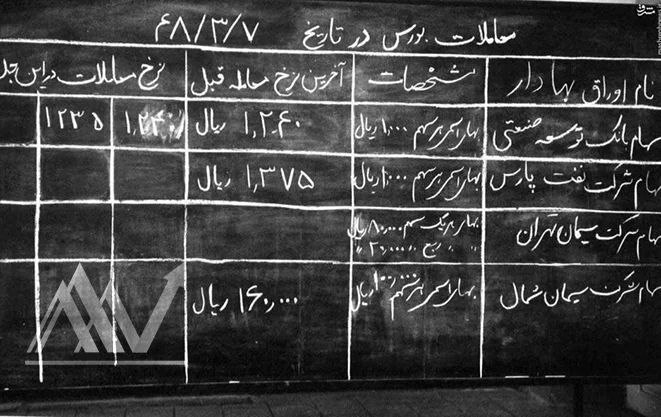 معاملات بورس در تاریخ ۴۸/۳/۷
نام اوراق بهادار مشخصات آخرین نرخ معامله قبل نرخ معاملات در این جلـ
سهام بانک توسعه صنعتی بهاء اسمی هر سهم ۱,۰۰۰ ریال ۱,۲۴۰ ریال ۱,۲۴۰ ۱۲۳۵
سهام شرکت نفت پارس بهاء اسمی هر سهم ۱,۰۰۰ ریال ۱,۳۷۵ ریال
سهام شرکت سیمان تهران بهاء هر یک سهم ۸۰,۰۰۰ ریال
" " ربع " ۲۰,۰۰۰ "
سهام شرکت سیمان شمال بهاء اسمی هر سهم ۱۰۰,۰۰۰ ریال ۱۶۰,۰۰۰ ریال